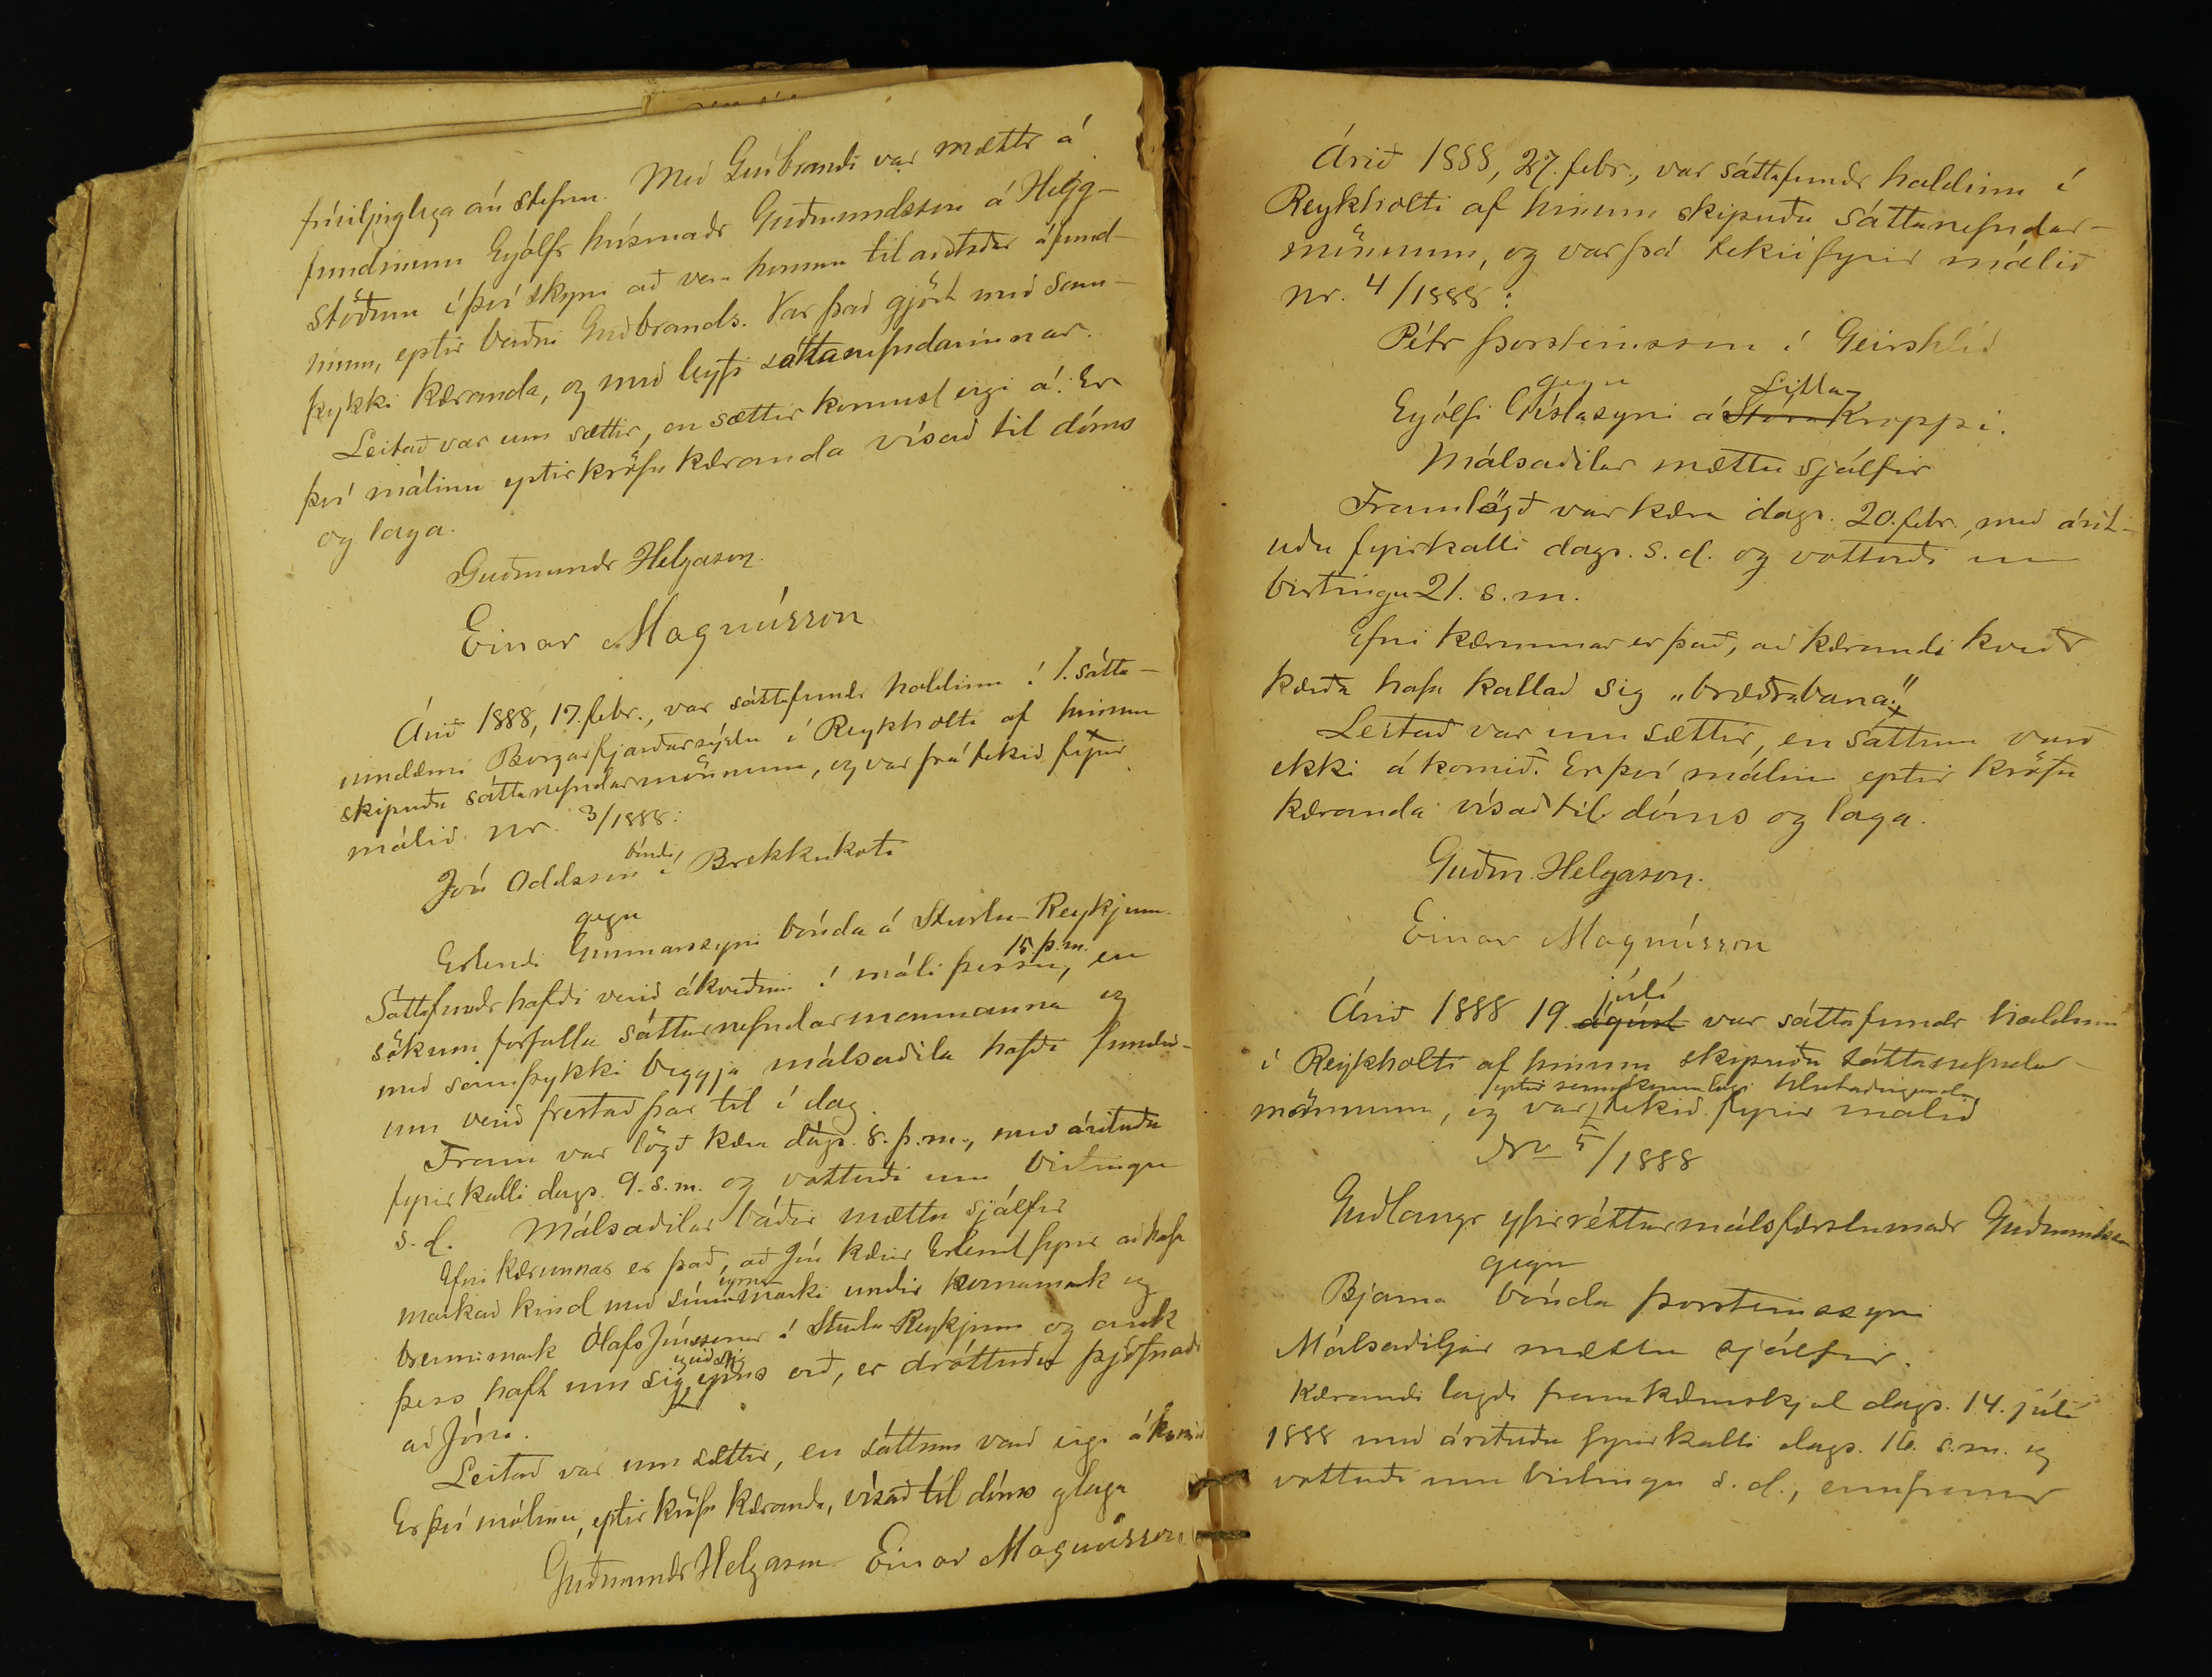 fúsilpiglega án stefnu. Með Guðbrandi var mættr á
fundinum Eyólfr húsmaðr Guðmundsson á Hegg-
stöðum í því skyni að vera honum til aðstoðar á fund-
inum, eptir beiðni Guðbrands. Var það gjört með sam-
þykki kæranda, og með leyfi sáttanefndarinnar.
Leitað var um sættir, en sættir komust eigi á. Er
því málinu eptir kröfu kæranda vísað til dóms
og laga.
Guðmundr Helgason.
Einar Magnússon
Árið 1888, 17. febr., var sáttafundr haldinn í 1. sátta-
umdæmi Borgarfjarðarsýslu í Reykholti af hinum
skipuðu sáttanefndarmönnum, og var þá tekið fyrir
málið nr. 3/1888:
Jón Oddsson bóndi í Brekkukoti
gegn
Erlendi Gunnarssyni bónda á Sturlu-Reykjum.
Sáttafundr hafði verið ákveðinn í máli þessu 15. þ.m., en
sökum forfalla sáttanefndarmannanna og
með samþykki beggja málsaðila hafði fundin-
um verið frestað þar til í dag.
Fram var lögð kæra dags. 8. þ.m., með árituðu
fyrirkalli dags. 9. s.m. og vottorði um birtingu
s.d. Málsaðilar báðir mættu sjálfir
Efni kærunnar er það, að Jón kærir Erlend fyrir að hafa
markað kind með sínu eyrnamarki undir hornamark og
brennimark Ólafs Jónssonar í Sturlu-Reykjum og auk
þess haft um sig ýmis orð, er dróttuðu þjófnaði
að Jóni.
Leitað var um sættir, en sáttum varð eigi á komið
Er því málinu, eptir kröfu kæranda, vísað til dóms og laga
Guðmundr Helgason Einar Magnússon
Árið 1888, 27. febr., var sáttafundr haldinn í
Reykholti af hinum skipuðu sáttanefndar-
mönnum, og var þá tekið fyrir málið
nr. 4/1888:
Pétr Þorsteinsson í Geirshlíð
gegn
Eyólfi Gíslasyni á Stóra Litla-Kroppi.
Málsaðilar mættu sjálfir
Framlögð var kæra dags. 20. febr., með árit-
uðu fyrirkalli dags. s.d. og vottorði um
birtingu 21. s.m.
Efni kærunnar er það, að kærandi kveðr
kærða hafa kallað sig „bræðrabana".
Leitað var um sættir, en sáttum varð
ekki á komið. Er því málinu eptir kröfu
kæranda vísað til dóms og laga.
Guðm. Helgason.
Einar Magnússon
Árið 1888 19. ágúst júlí var sáttafundr haldinn
í Reykholti af hinum skipuðu sáttanefndar-
mönnum, og var eptir samkomulagi hlutaðeigenda tekið fyrir málið
No 5/1888
Guðlaugr yfirréttarmálsfærslumaðr Guðmundsson
gegn
Bjarna bónda Þorsteinssyni
Málsaðiljar mættu sjálfir.
Kærandi lagði fram kæruskjal dags. 14. júlí
1888 með árituðu fyrirkalli dags. 16. s.m. og
vottorði um birtingu s.d., ennfremur